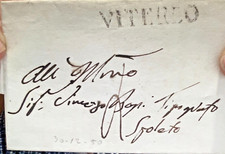 VITERBO
All' Ill'mo
Sig. Vincenzo Rossi Tipografo
Spoleto